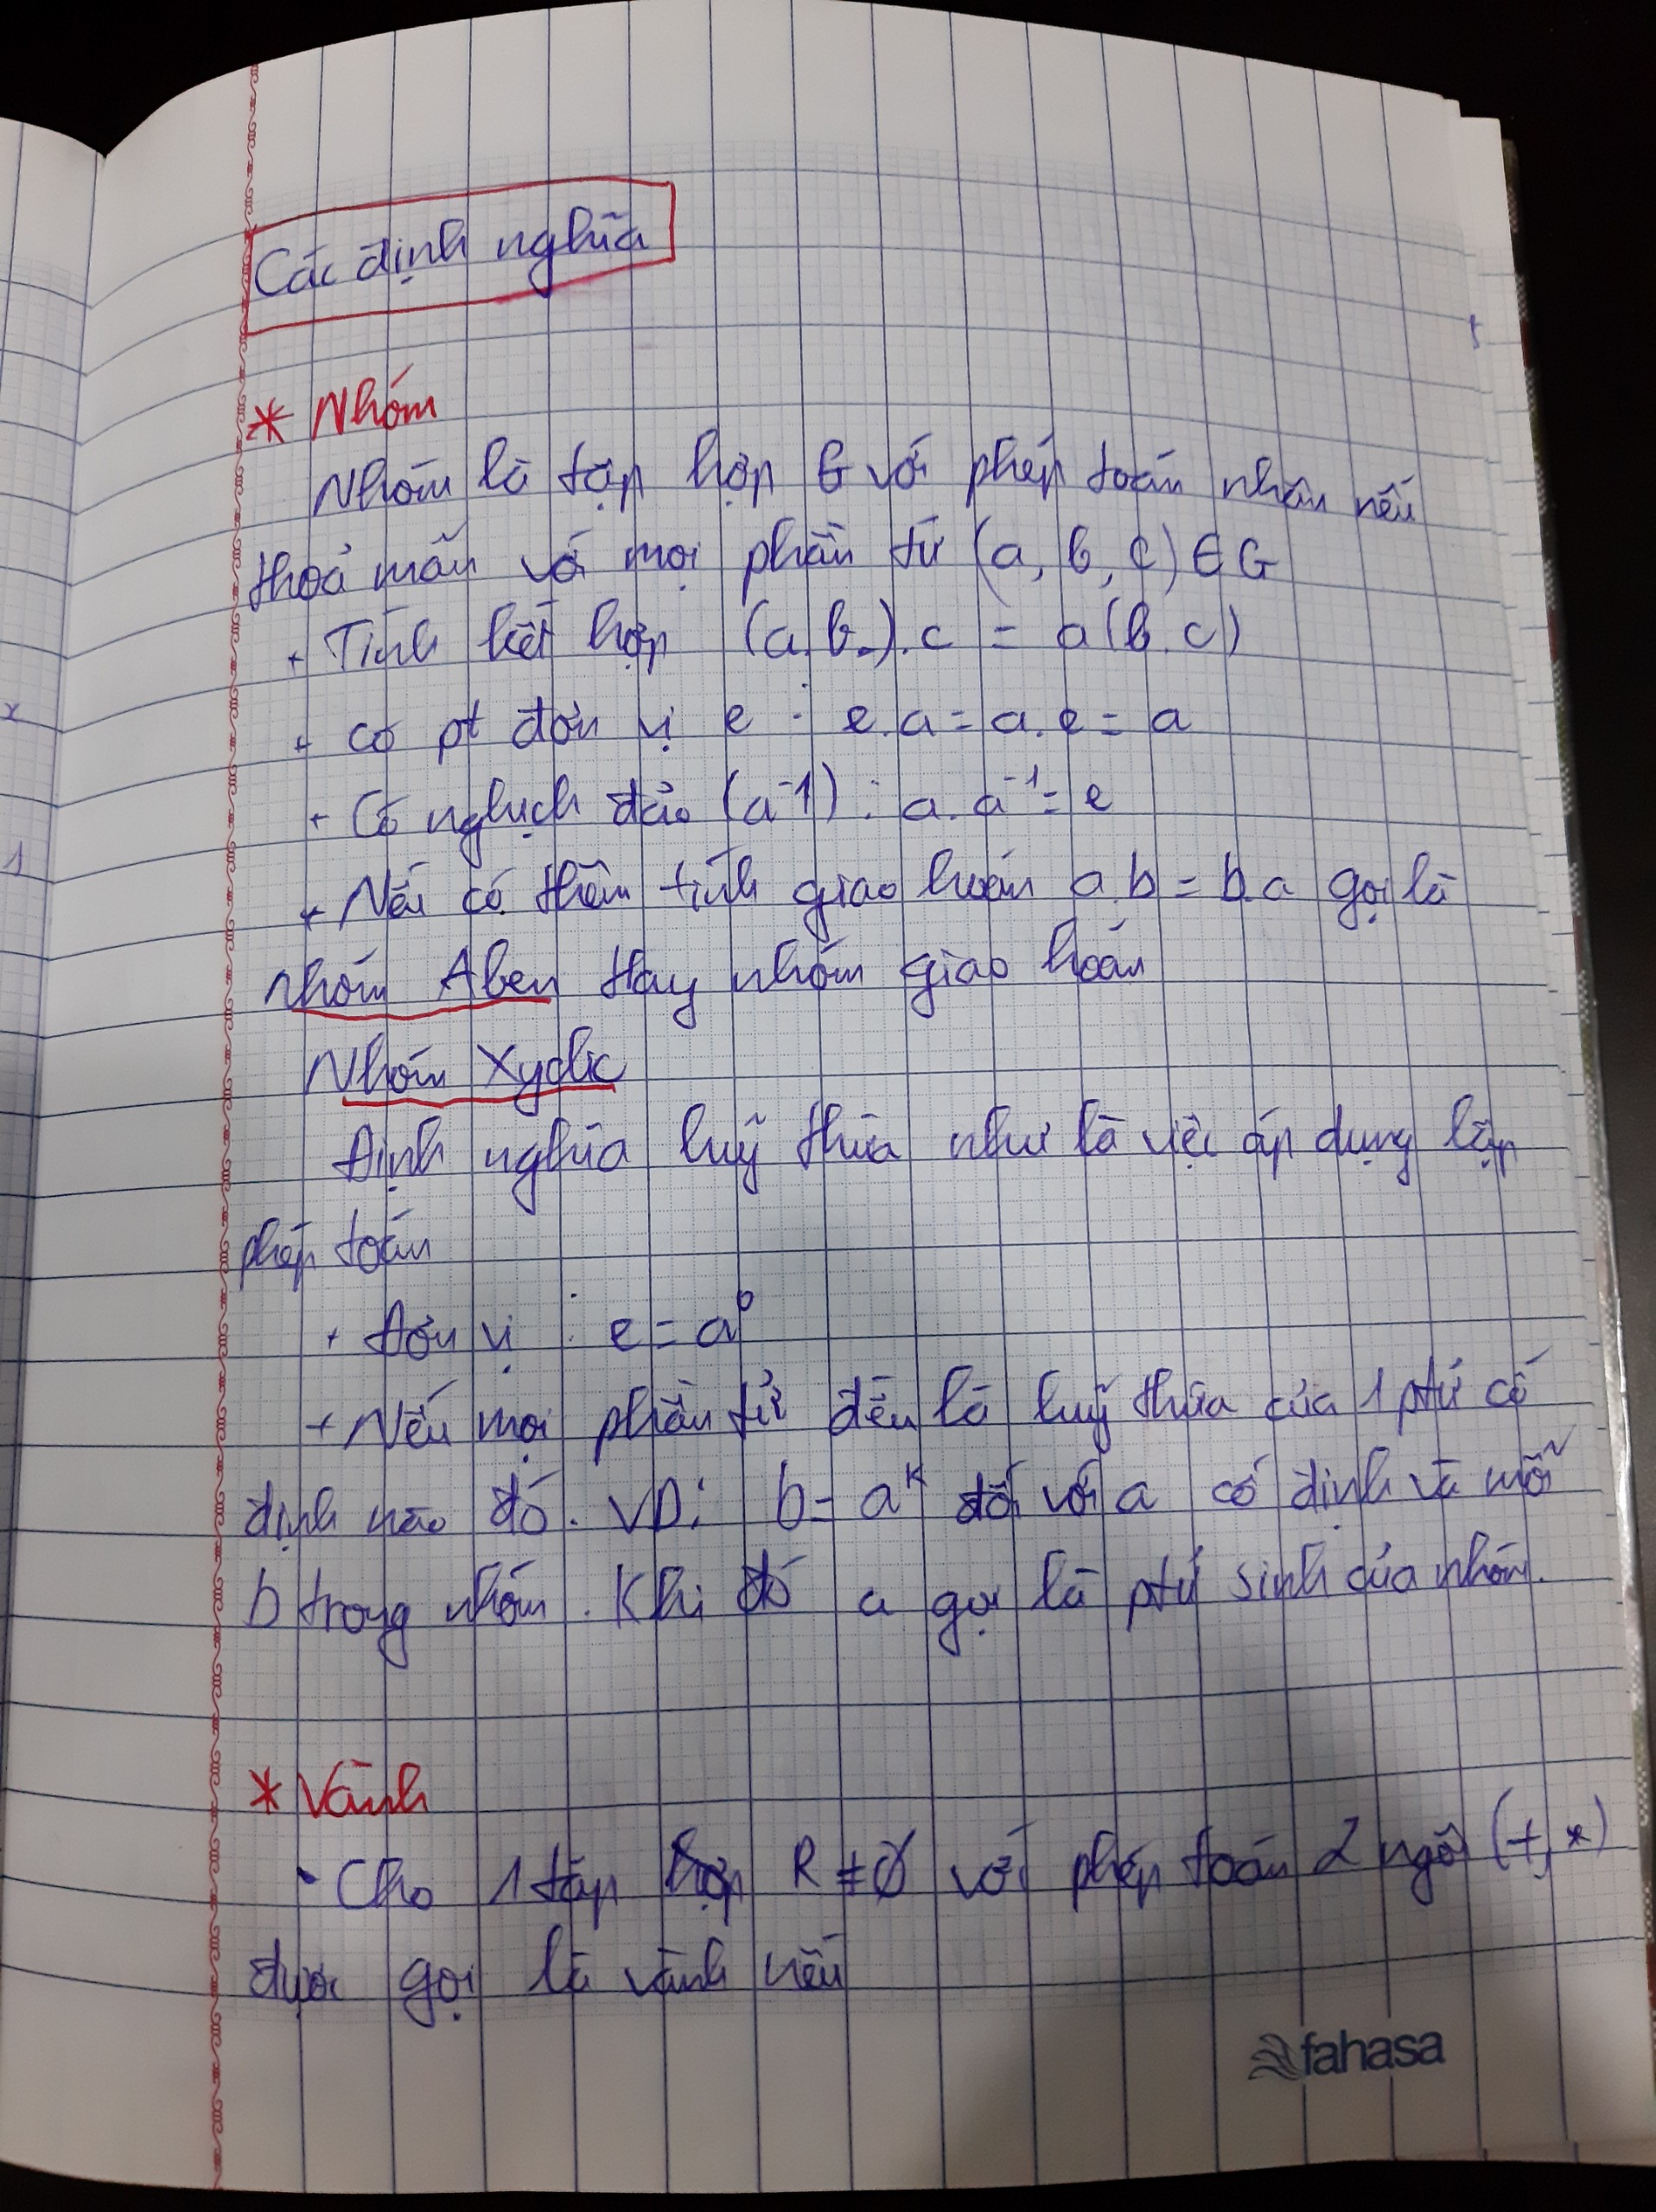 Các định nghĩa
* Nhóm
Nhóm là tập hợp G với phép toán nhân nếu
thoả mãn với mọi phần tử (a, b, c) ∈ G
+ Tính kết hợp (a.b.).c = a(b.c)
+ có pt đơn vị e : e.a = a.e = a
+ Có nghịch đảo (a⁻¹) : a.a⁻¹ = e
+ Nếu có thêm tính giao hoán a.b = b.a gọi là
nhóm Aben Hay nhóm giao hoán
Nhóm Xyclic
Định nghĩa luỹ thừa như là việc áp dụng lặp
phép toán
+ Đơn vị : e = a⁰
+ Nếu mọi phần tử đều là luỹ thừa của 1 ptử cố
định nào đó. VD: b = aᴷ đối với a cố định và mỗi
b trong nhóm. Khi đó a gọi là ptử sinh của nhóm.
* Vành
- Cho 1 tập hợp R ≠ ∅ với phép toán 2 ngôi (+, *)
được gọi là vành nếu
fahasa